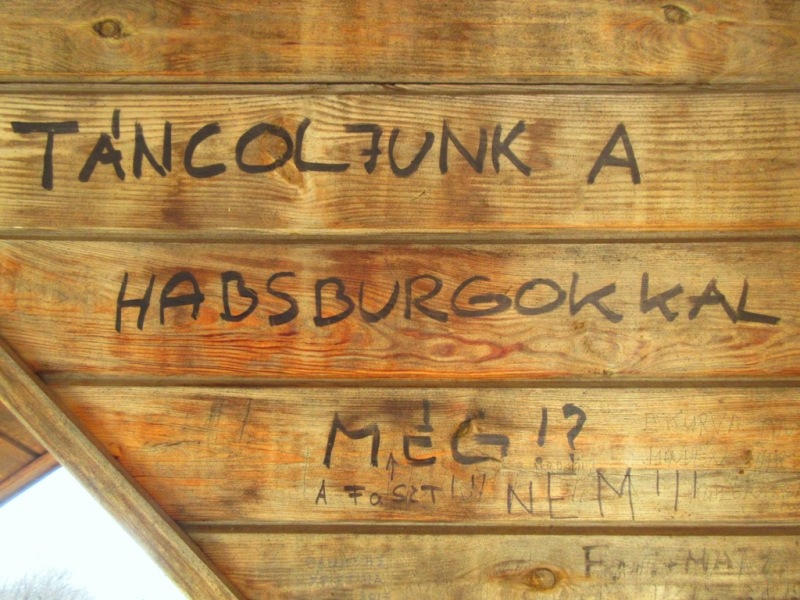 TÁNCOLJUNK A
HABSBURGOKKAL
MÉG!?
A FaSZT!!! NEM!!!